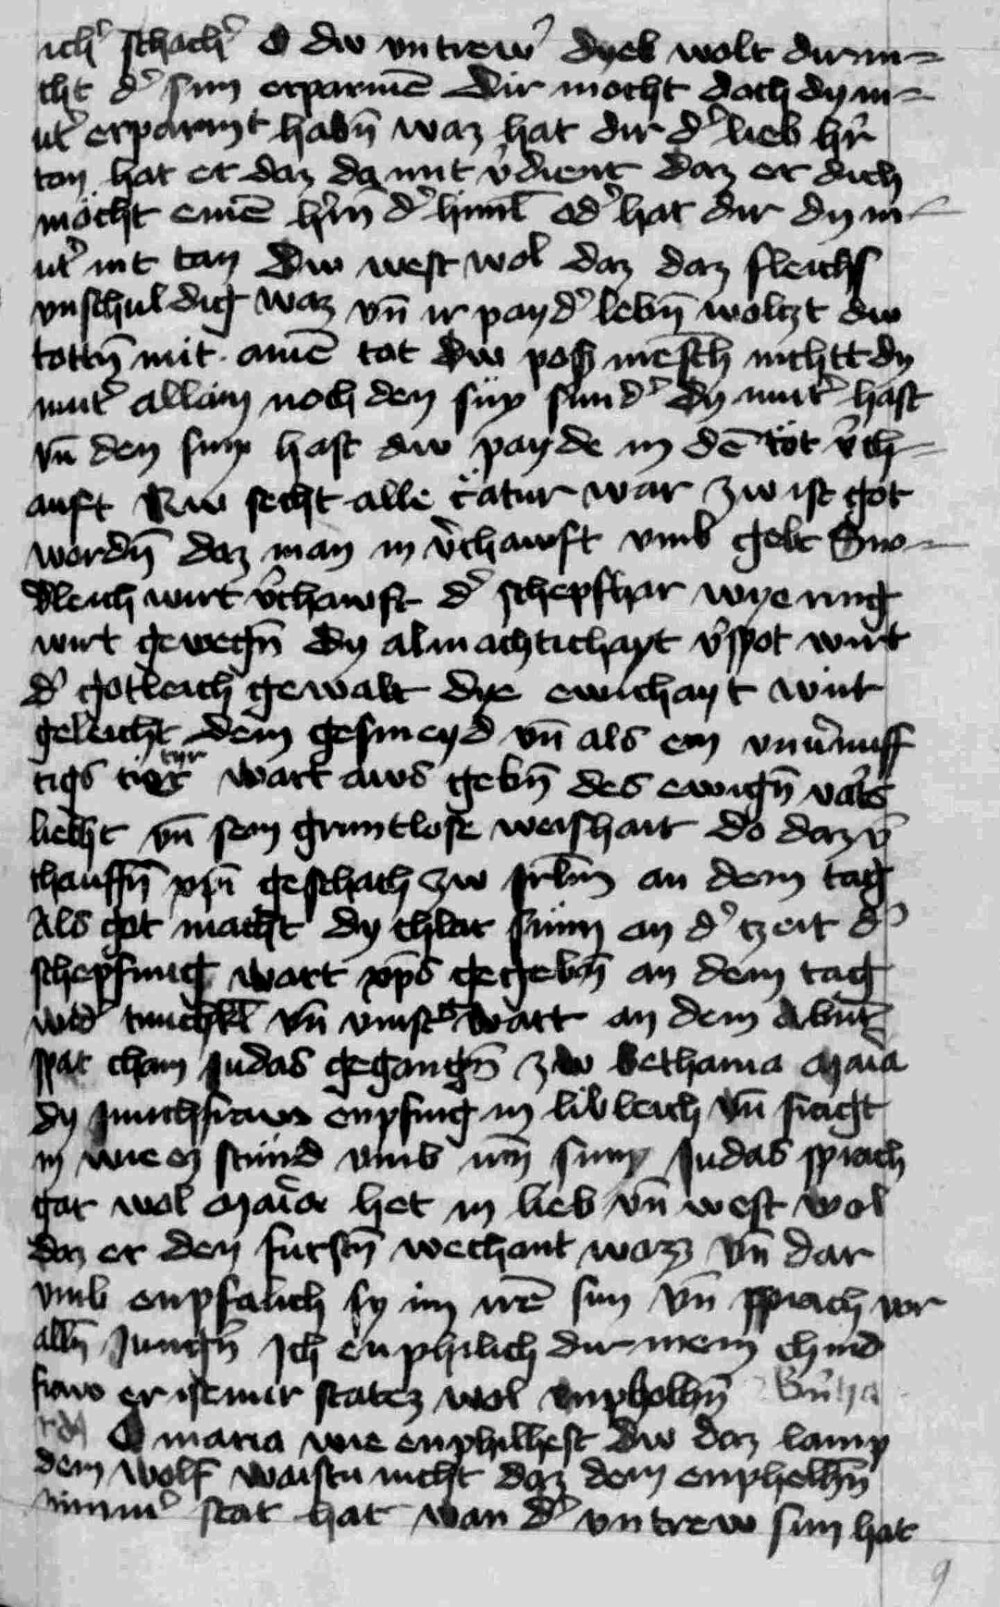 ich᷑ schach᷑ O dw vntrew᷑ dyeb wolt dir ni-
cht d᷑ sun erparmē Dir mocht doch dy m-
ut᷑ erparmt habn̄ waz hat dir d᷑ lieb h᷑r
tan hat er daz da mit v᷑dient daz er dich
mocht einē h᷑rn d᷑ himl̄ od᷑ hat dir dy m-
ut᷑ nit tan Dw west wol daz daz fleichs
vnschuldig waz vn̄ ir payd᷑ lebn̄ woltzt dw
tottn̄ mit ainē tot Dw poß mēsch nichtt dy
mut᷑ allain noch den sun sund᷑ Dy mut᷑ hast
vn̄ den sun hast dw payde in dē tot v᷑ch-
auft Nw secht alle c᷑atur war zw ist got
wordn̄ daz man in v᷑chawft vmb gelt Sno-
dleich wirt v᷑chawft d᷑ schepfhar wye ring
wirt gewegn̄ Dy almachtichayt v᷑spot wirt
d᷑ gotleich gewalt dye ewichayt wirt
geleicht dem gesmeyd vn̄ als ein vnu᷑nuff
tigs tier tyr wart aws gebn̄ des ewign̄ vat᷑s
liecht vn̄ sein gruntlose weishait do daz v᷑
chauffn̄ xp̄i geschach zw jrl̄m an dem tag
Als got macht dy chlar sunn an d᷑ tzeit d᷑
schepfung wart xp̄s gegebn̄ an dem tag
wid᷑ tunchkl̄ vn̄ vinst᷑ Wart an dem Abnt̄
spat cham judas gegangn̄ zw bethania Maīa
dy junchfraw enpfing in libleich vn̄ fragt
in wie ez stund vmb irn̄ sun judas sprach
gar wol Maīa het in lieb vn̄ west wol
daz er den fursn̄ wechant waz vn̄ dar
vmb enpfalich sy im irē sun vn̄ sprach vor
alln̄ jungn̄ jch enphilich dir mein chind
fraw er ist mir statez wol enpholhn̄
O maria wie enphilhest dw daz lamp
dem wolf waistu nicht daz dem enphelhn̄
nimm᷑ stat hat wan d᷑ vntrew sun hat
9